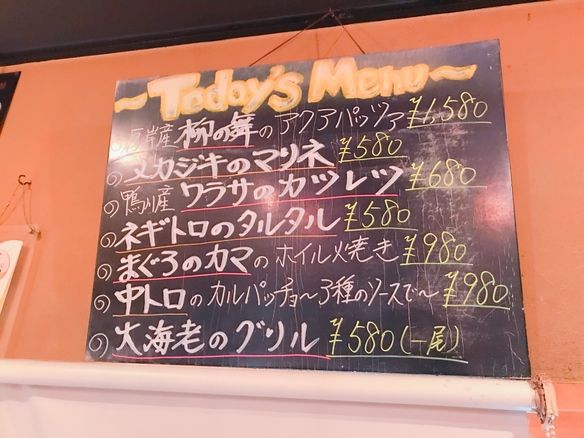 ~Today's Menu~
岸産 柳の舞のアクアパッツァ ¥1,580
メカジキのマリネ ¥580
鴨川産 ワラサのカツレツ ¥680
ネギトロのタルタル ¥580
まぐろのカマのホイル焼き ¥980
中トロのカルパッチョ〜3種のソースで〜 ¥980
大海老のグリル ¥580(一尾)